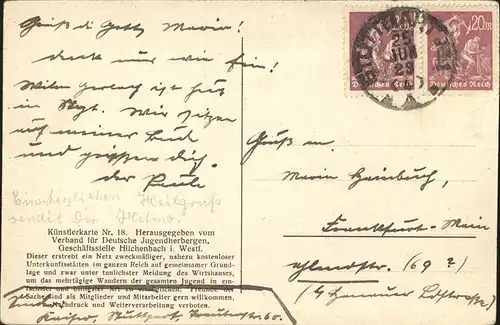 Grüß di Gott, Maria!
denk nur wie fein!
ist zur
in Stgt. Wir sitzen
auf meiner Bud
und grüßen dich.
der Paule
Einen herzlichen Heilgruß
sendet Dir Helmo.
Künstlerkarte Nr. 18. Herausgegeben vom
Verband für Deutsche Jugendherbergen,
Geschäftsstelle Hilchenbach i. Westf.
Dieser erstrebt ein Netz zweckmäßiger, nahezu kostenloser
Unterkunftsstätten im ganzen Reich auf gemeinsamer Grund-
lage und zwar unter tunlichster Meidung des Wirtshauses,
um das mehrtägige Wandern der gesamten Jugend in ein-
Sache sind als Mitglieder und Mitarbeiter gern willkommen.
druck und Weiterverarbeitung verboten.
Kaiser, Stuttgart, 60.
STUTTGART
25
JUN
23
20 M
Deutsches Reich
20 M
Deutsches Reich
Gruß m.
Maria Hainbuch,
Frankfurt-Main
Uhlandstr. (69?)